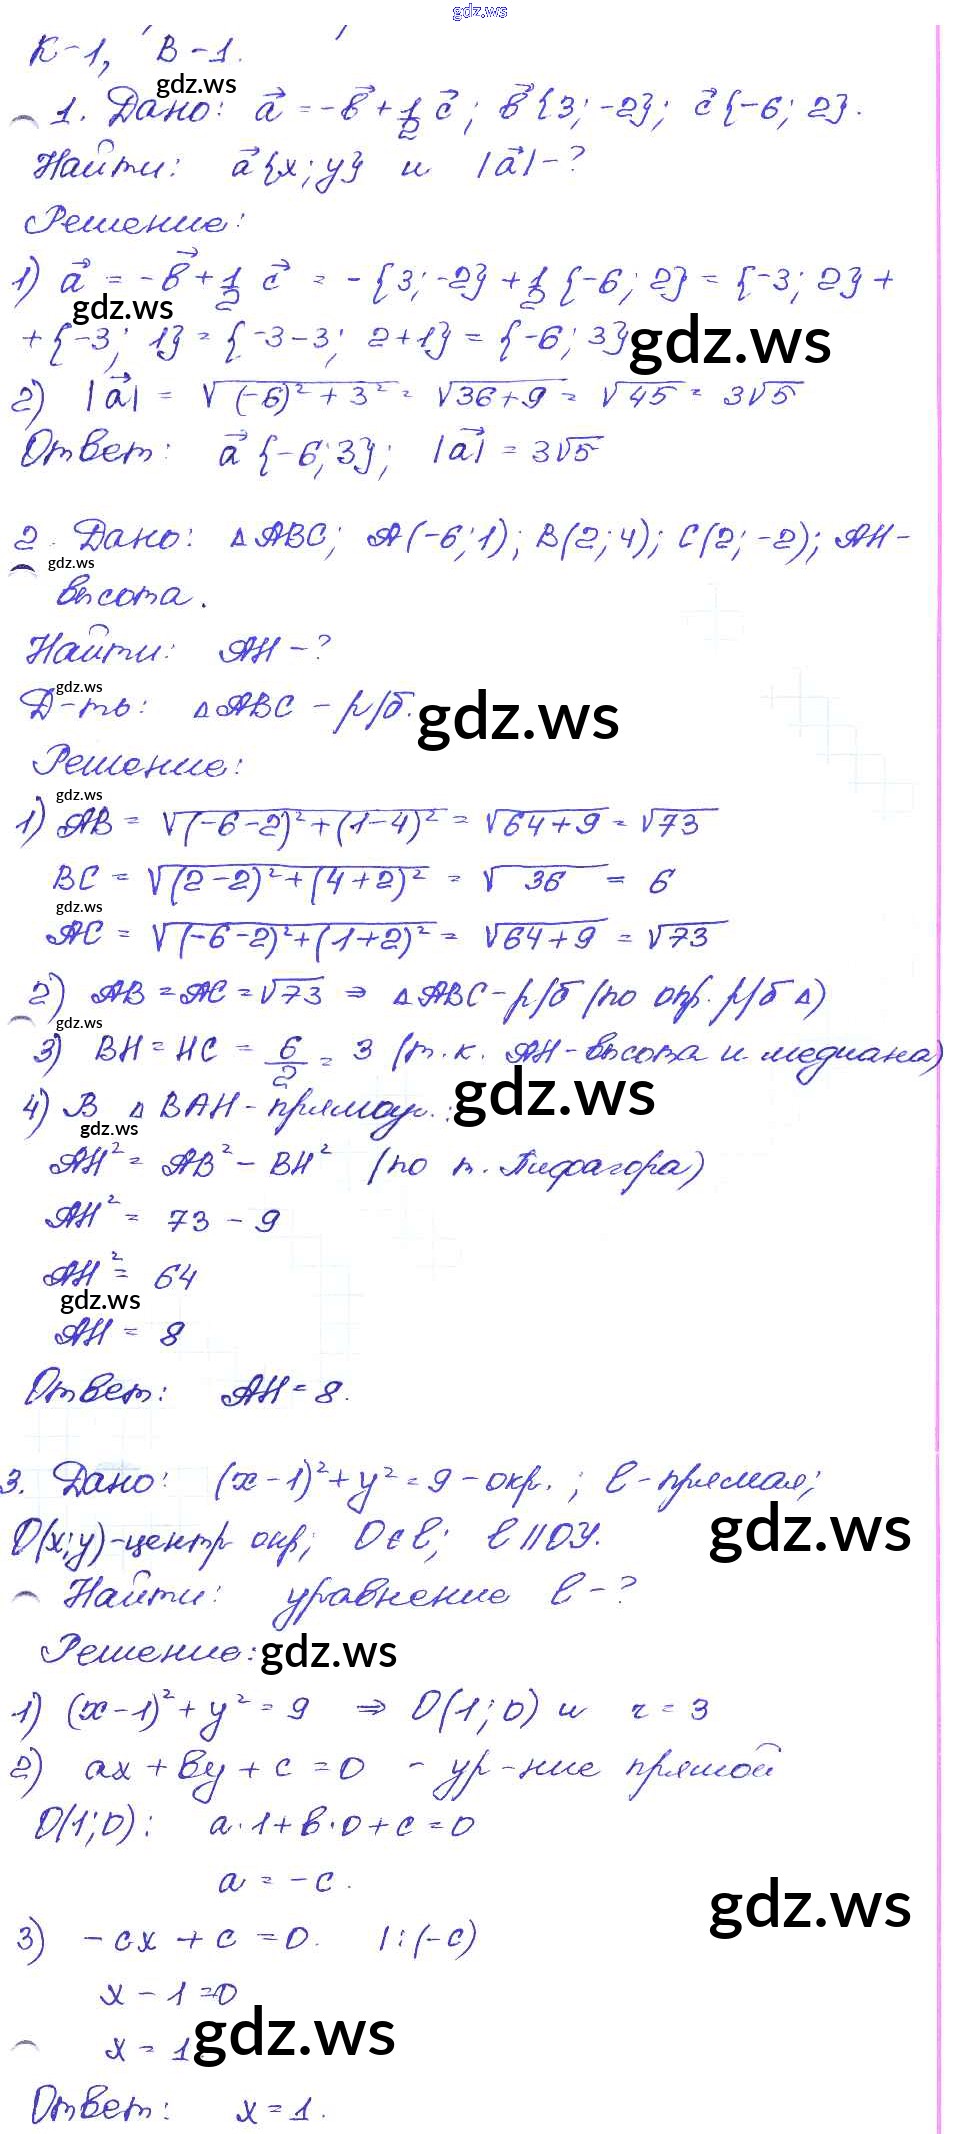 gdz.ws
К-1, В-1.
gdz.ws
1. Дано: a⃗ = -b⃗ + 1/2 c⃗; b⃗{3; -2}; c⃗{-6; 2}.
Найти: a⃗{x; y} и |a⃗| - ?
Решение:
1) a⃗ = -b⃗ + 1/2 c⃗ = -{3; -2} + 1/2 {-6; 2} = {-3; 2} +
gdz.ws
+ {-3; 1} = {-3-3; 2+1} = {-6; 3} gdz.ws
2) |a⃗| = √(-6)² + 3² = √36+9 = √45 = 3√5
Ответ: a⃗ {-6; 3}; |a⃗| = 3√5
2. Дано: △ABC; A(-6; 1); B(2; 4); C(2; -2); AH -
gdz.ws
высота.
Найти: AH - ?
gdz.ws
Д-ть: △ABC - р/б. gdz.ws
Решение:
gdz.ws
1) AB = √(-6-2)²+(1-4)² = √64+9 = √73
BC = √(2-2)²+(4+2)² = √36 = 6
gdz.ws
AC = √(-6-2)²+(1+2)² = √64+9 = √73
2) AB = AC = √73 ⇒ △ABC - р/б (по опр. р/б △)
gdz.ws
3) BH = HC = 6/2 = 3 (т.к. AH - высота и медиана)
gdz.ws
4) В △BAH - прямоуг.:
gdz.ws
AH² = AB² - BH² (по т. Пифагора)
AH² = 73 - 9
AH² = 64
gdz.ws
AH = 8
Ответ: AH = 8.
3. Дано: (x-1)² + y² = 9 - окр.; l - прямая;
gdz.ws
O(x; y) - центр окр; O ∈ l; l || OY.
Найти: уравнение l - ?
Решение: gdz.ws
1) (x-1)² + y² = 9 ⇒ O(1; 0) и r = 3
2) ax + by + c = 0 - ур-ние прямой
O(1; 0): a·1 + b·0 + c = 0
a = -c.
gdz.ws
3) -cx + c = 0. |:(-c)
x - 1 = 0
x = 1. gdz.ws
Ответ: x = 1.